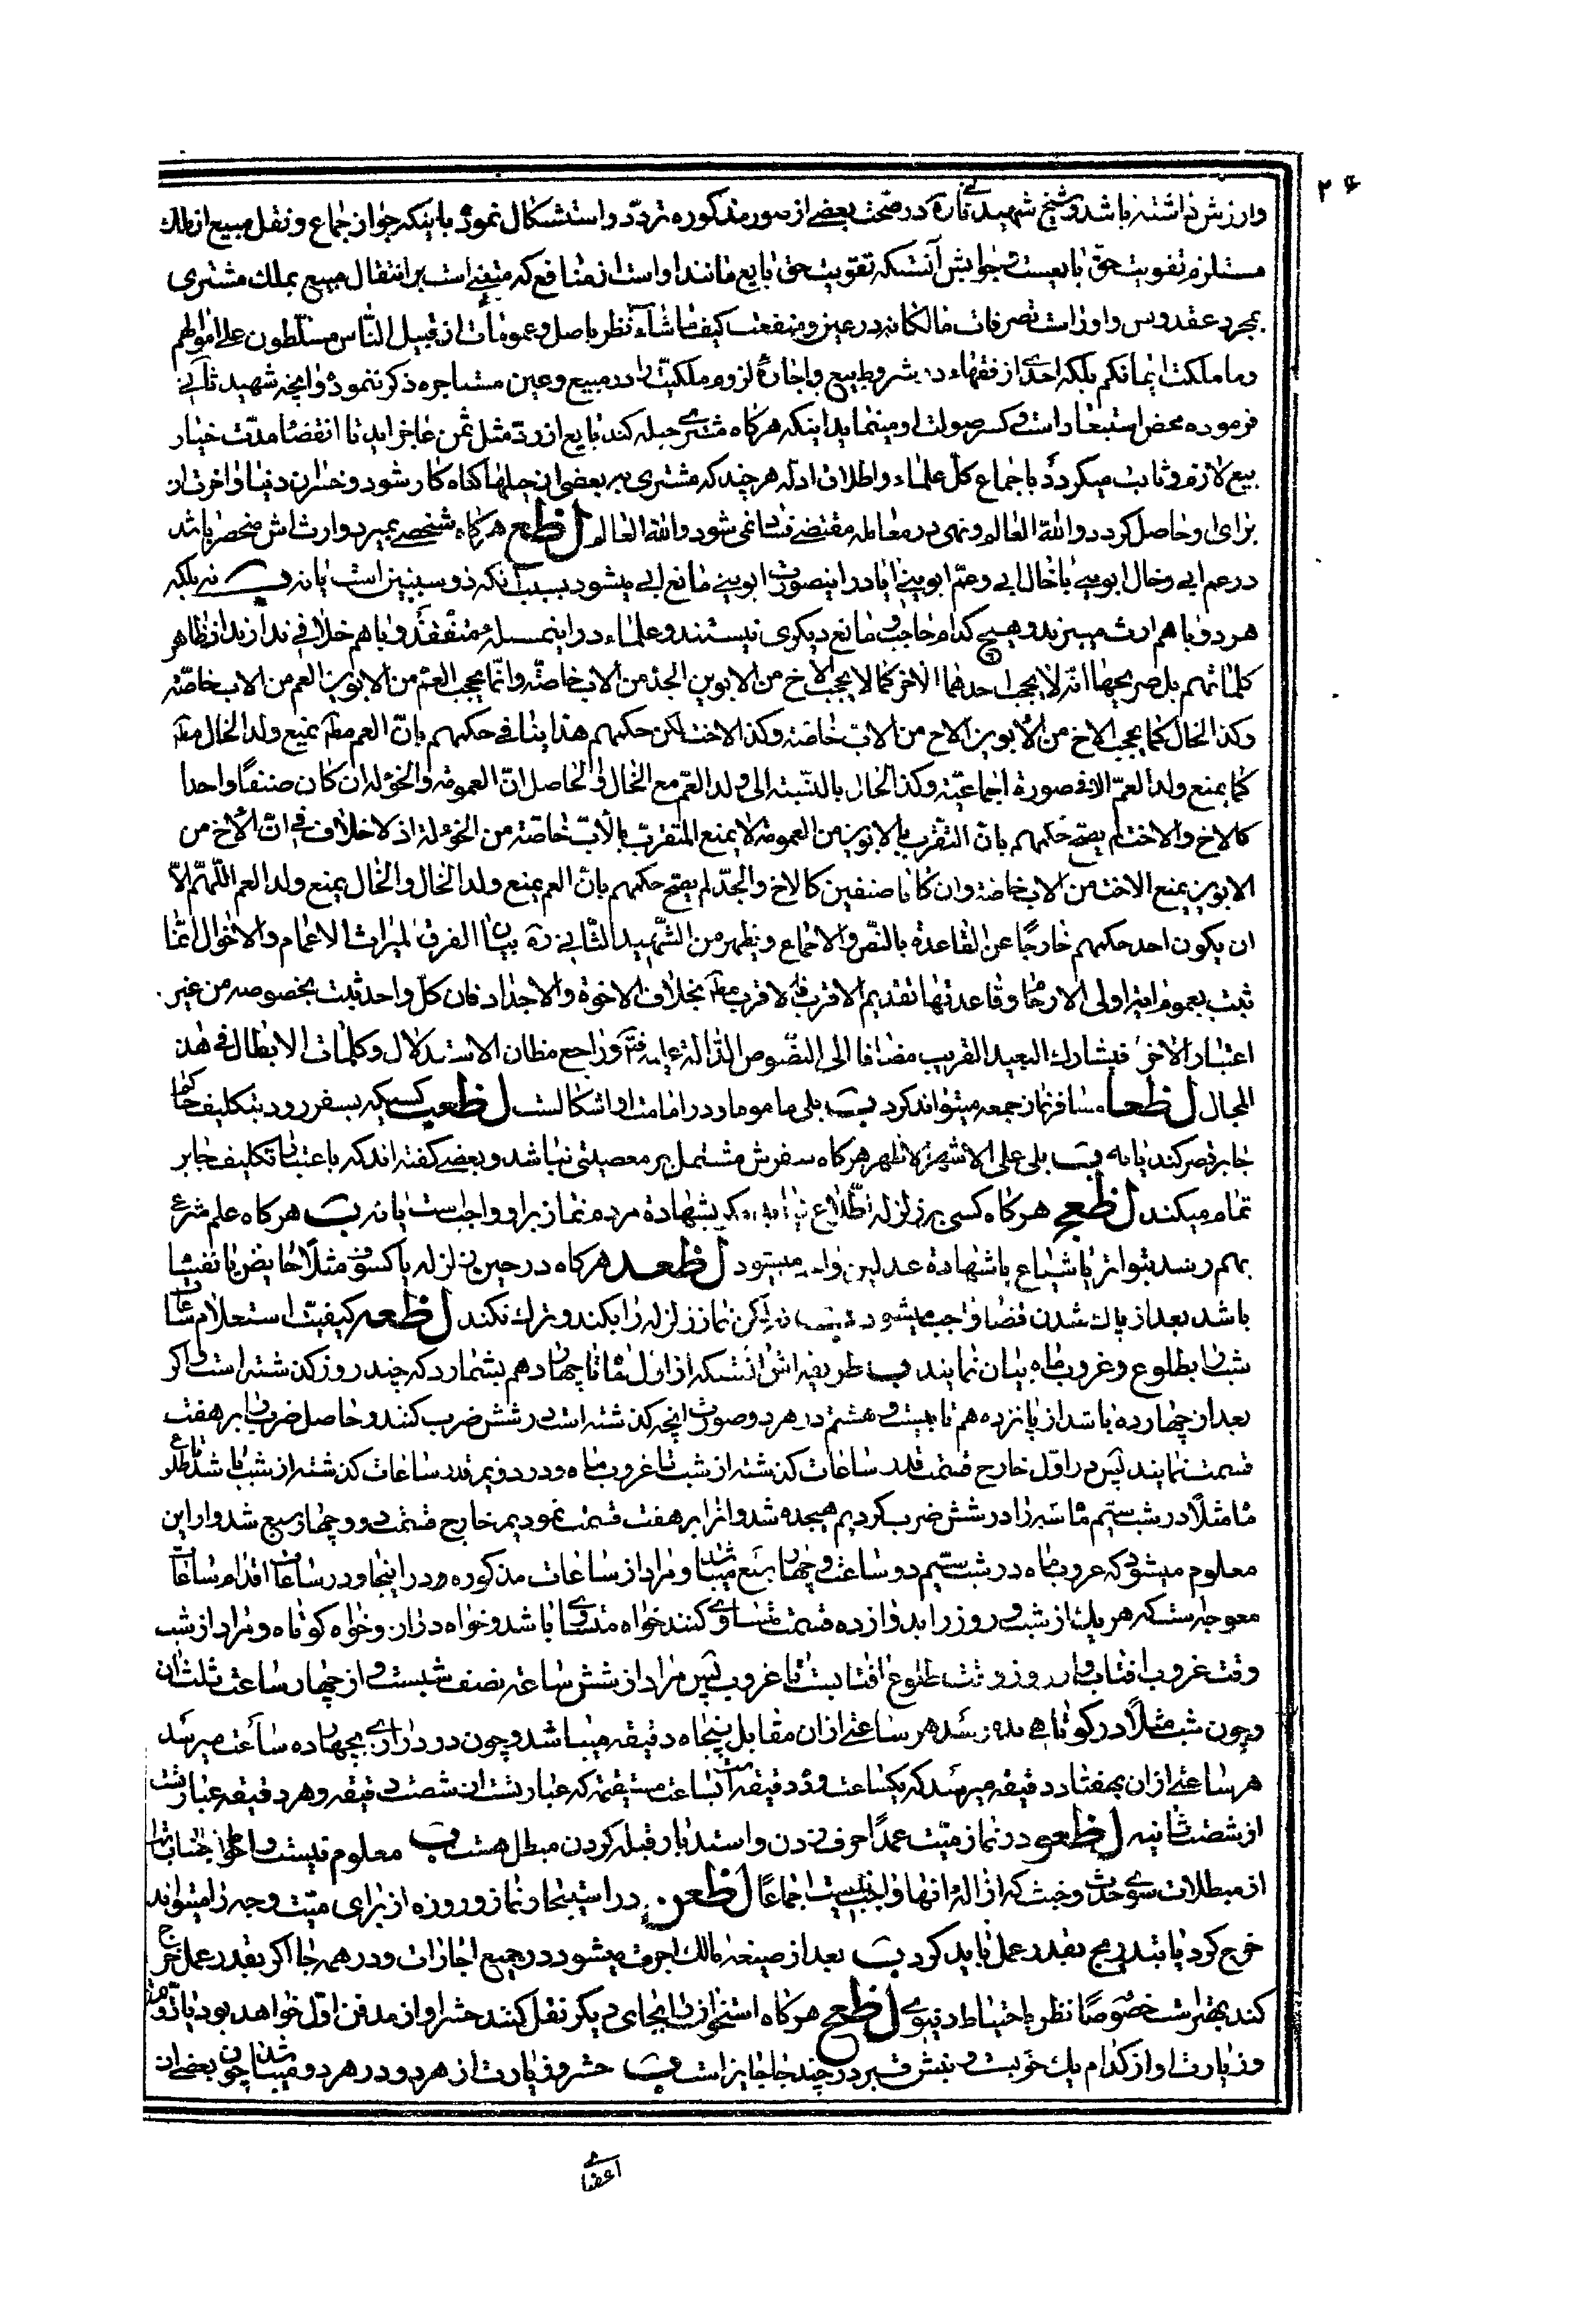 ۲۴
وارزش داشته باشد و شیخ شهید ثانی ره در صحت بعضے از صور مذکوره تردّد و استشکال نموده باینکه جواز جماع و نقل مبیع از ملک
مستلزم تفویت حق بایعست جوابش آنستکه تفویت حق بایع مانند او است از منافع که متفرع است بر انتقال مبیع بملک مشتری
بمجرد عقد پس او راست تصرفات مالکانه در عین و منفعت کیف ما شاء نظر باصل و عمومات از قبیل الناس مسلّطون علی اموالهم
وما ملکت ایمانکم بلکه احدے از فقهاء در شروط بیع و اجاره لزوم ملکیّت را در مبیع و عین مستاجره ذکر ننموده و آنچه شهید ثانے
فرموده محض استبعاد است و کسر صولت او مینماید اینکه هرکاه مشترے حیله کند بایع از ردّ مثل ثمن عاجز اید تا انقضاء مدّت خیار
بیع لازم و ثابت میکردد باجماع کل علماء و اطلاق ادله هر چند که مشتری بر بعضی از حیلها کناه کار شود و خسران دنیا و اخرت ان
برای او حاصل کردد والله العالم و نهی در معامله مقتضے فساد نمی شود والله العالم ل ظع هرکاه شخصے بمیرد وارث اش منحصر باشد
در عم ابی و خال ابوینی یا خال ابی و عم ابوینی ایا در اینصورت ابوینی مانع ابی میشود بسبب آنکه ذو سببین است یا نه ج نه بلکه
هر دو با هم ارث میبرند و هیچ کدام حاجب و مانع دیکری نیستند و علماء در اینمسئله متفقند و با هم خلافی ندارند از ظاهر
کلماتهم بل صریحها انّه لا یحجب احدهما الاخر کما لا یحجب الاخ من الابوین الجد من الاب خاصّة وانّما یحجب العم من الابوین العم من الاب خاصّة
وکذا الخال کما یحجب الاخ من الابوین الاخ من الاب خاصّة وکذا الاخت لکن حکمهم هذا ینافی حکمهم بانّ العم مط یمنع ولد الخال مط
کما یمنع ولد العمّ الا فی صورة اجماعیّة وکذا الخال بالنّسبة الی ولد العمّ مع الخال و الحاصل انّ العمومة والخؤلة ان کان صنفًا واحدا
کالاخ والاخت لم یصحّ حکمهم بان المتقرب بالابوین من العمومة لا یمنع المتقرب بالاب خاصّة من الخؤلة اذ لا خلاف فی انّ الاخ من
الابوین یمنع الاخت من الاب خاصة وان کانا صنفین کالاخ والجدّ لم یصح حکمهم بانّ العم یمنع ولد الخال والخال یمنع ولد العم اللّهمّ الّا
ان یکون احد حکمهم خارجًا عن القاعدة بالنّص والاجماع ویظهر من الشّهید الثّانی ره بیان الفرق لمیراث الاعمام والاخوال انّما
ثبت بعموم ایة اولی الارحام وقاعدتها تقدیم الاقرب فالاقرب مط بخلاف الاخوة والاجداد فان کلّ واحد ثبت بخصوصه من غیر
اعتبار الاخر فیشارک البعید القریب مضافا الی النصوص الدّالة علیه فتم وراجع مظان الاستدلال وکلمات الابطال فی هذ
المجال ل ظعا مسافر نماز جمعه میتواند کرد ج بلی ماموما و در امامت او اشکالست ل ظعب کسیکه بسفر رود بتکلیف حاکم
جابر قصر کند یا نه ج بلی علی الاشهر الاظهر هرکاه سفرش مشتمل بر معصیتی نباشد و بعضے کفته اند که باعتبار تکلیف جابر
تمام میکند ل ظعج هرکاه کسی بر زلزله اطلاع نیابد بشهادة مردم نماز بر او واجبست یا نه ج هرکاه علم شرعے
بهم رسد بتواتر یا شیاع یا شهادة عدلین واجب میشود ل ظعد هرکاه در حین زلزله یا کسوف مثلًا حایض یا نفسا
باشد بعد از پاک شدن قضا واجب میشود نه لکن نماز زلزله را بکند و ترک نکند ل ظعه کیفیّت استعلام ساعات
شب را بطلوع و غروب ماه بیان نمایند ج طریقه اش آنستکه از اول ماه تا چهاردهم بشمارد که چند روز کذشته است و اکر
بعد از چهارده باشد از پانزدهم تا بیست و هشتم در هر دو صورت انچه کذشته است در شش ضرب کنند و حاصل ضرب را بر هفت
قسمت نمایند پس در اوّل خارج قسمت قدر ساعات کذشته از شب تا غروب ماه و در دویم قدر ساعات کذشته از شب باشد تا طلوع
ماه مثلًا در شب سیّم ماه سه را در شش ضرب کردیم هیجده شد و انرا بر هفت قسمت نمودیم خارج قسمت دو و چهار سبع شد و از این
معلوم میشود که غروب ماه در شب سیّم دو ساعت و چهار سبع میباشد و مراد از ساعات مذکوره در اینجا و در ساعات اقدام ساعات
معوجه ستکه هر یک از شب و روز را بدوازده قسمت مساوے کنند خواه متساوے باشد و خواه دراز و خواه کوتاه و مراد از شب
وقت غروب افتاب و از روز وقت طلوع افتابست تا غروب پس مراد از شش ساعة نصف شبست و از چهار ساعت ثلث ان
وچون شب مثلًا در کوتاهی بده رسد هر ساعتے از ان مقابل پنجاه دقیقه میباشد و چون در درازے بچهارده ساعت میرسد
هر ساعتے از ان بهفتاد دقیقه میرسد که یکساعت و ده دقیقه است بساعت مستقیمه که عبارتست از شصت دقیقه و هر دقیقه عبارتست
از شصت ثانیه ل ظعو در نماز میّت عمدًا حرف زدن و استدبار قبله کردن مبطل هست ج معلوم نیست و احوط اجتناب است
از مبطلات سوے حدث و خبث که ازالهٔ انها واجب نیست اجماعًا ل ظعز در استیجار نماز و روزه از برای میّت وجه را میتواند
خرج کرد یا بتدریج بقدر عمل باید کرد ج بعد از صیغه مالک اجرت میشود در جمیع اجارات و در همه جا اکر بقدر عمل خرج
کند بهتر است خصوصًا نظر باحتیاط دنیوے ل ظعح هرکاه استخوان را بجای دیکر نقل کنند حشر او از مدفن اوّل خواهد بود یا دوّم
و زیارت او از کدام یک خوبست و نبش قبر در چند جا جایز است ج حشر و زیارت از هر دو و در هر دو میباشد چون بعضے از
اعضاے